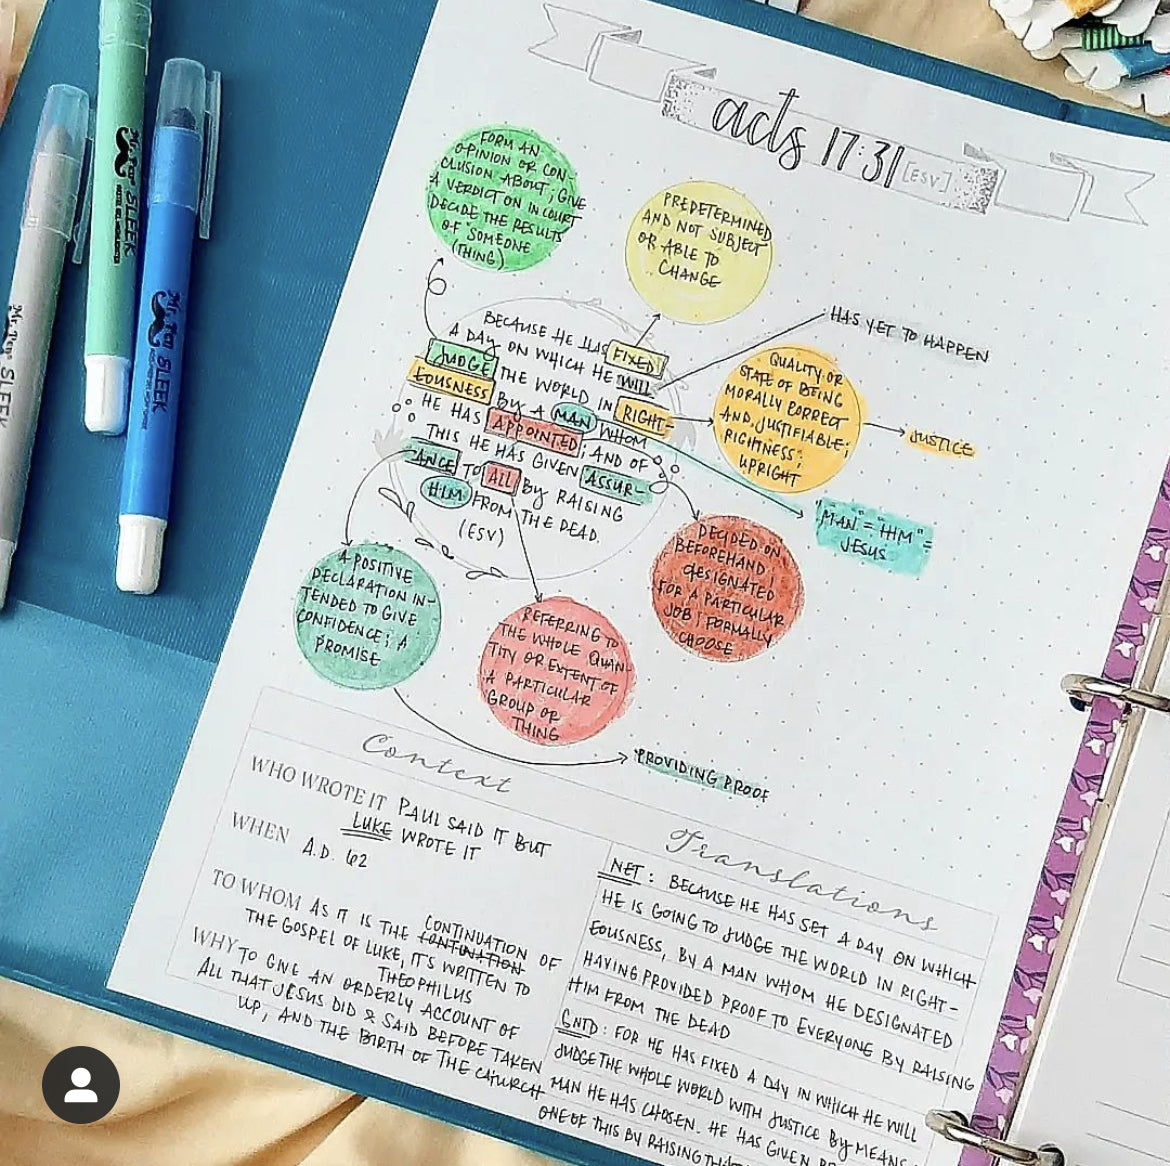 acts 17:31 [ESV]
FORM AN
OPINION OR CON-
CLUSION ABOUT; GIVE
A VERDICT ON IN COURT
DECIDE THE RESULTS
OF SOMEONE
(THING)
PREDETERMINED
AND NOT SUBJECT
OR ABLE TO
CHANGE
HAS YET TO HAPPEN
BECAUSE HE HAS FIXED
A DAY ON WHICH HE WILL
JUDGE THE WORLD IN RIGHT-
EOUSNESS BY A MAN WHOM
HE HAS APPOINTED; AND OF
THIS HE HAS GIVEN ASSUR-
ANCE TO ALL BY RAISING
HIM FROM THE DEAD.
(ESV)
QUALITY OR
STATE OF BEING
MORALLY CORRECT
AND JUSTIFIABLE;
RIGHTNESS;
UPRIGHT
JUSTICE
"MAN" = "HIM" =
JESUS
DECIDED ON
BEFOREHAND;
DESIGNATED
FOR A PARTICULAR
JOB; FORMALLY
CHOOSE
A POSITIVE
DECLARATION IN-
TENDED TO GIVE
CONFIDENCE; A
PROMISE
REFERRING TO
THE WHOLE QUAN
TITY OR EXTENT OF
A PARTICULAR
GROUP OR
THING
PROVIDING PROOF
Context
WHO WROTE IT PAUL SAID IT BUT
LUKE WROTE IT
WHEN A.D. 62
TO WHOM AS IT IS THE CONTINUATION OF
THE GOSPEL OF LUKE, IT'S WRITTEN TO
THEOPHILUS
WHY TO GIVE AN ORDERLY ACCOUNT OF
ALL THAT JESUS DID & SAID BEFORE TAKEN
UP, AND THE BIRTH OF THE CHURCH
Translations
NET: BECAUSE HE HAS SET A DAY ON WHICH
HE IS GOING TO JUDGE THE WORLD IN RIGHT-
EOUSNESS, BY A MAN WHOM HE DESIGNATED
HAVING PROVIDED PROOF TO EVERYONE BY RAISING
HIM FROM THE DEAD
GNTD: FOR HE HAS FIXED A DAY IN WHICH HE WILL
JUDGE THE WHOLE WORLD WITH JUSTICE BY MEANS
MAN HE HAS CHOSEN. HE HAS GIVEN
ONE OF THIS BY RAISING
Mr. Pen SLEEK
Mr. Pen SLEEK
Mr. Pen SLEEK